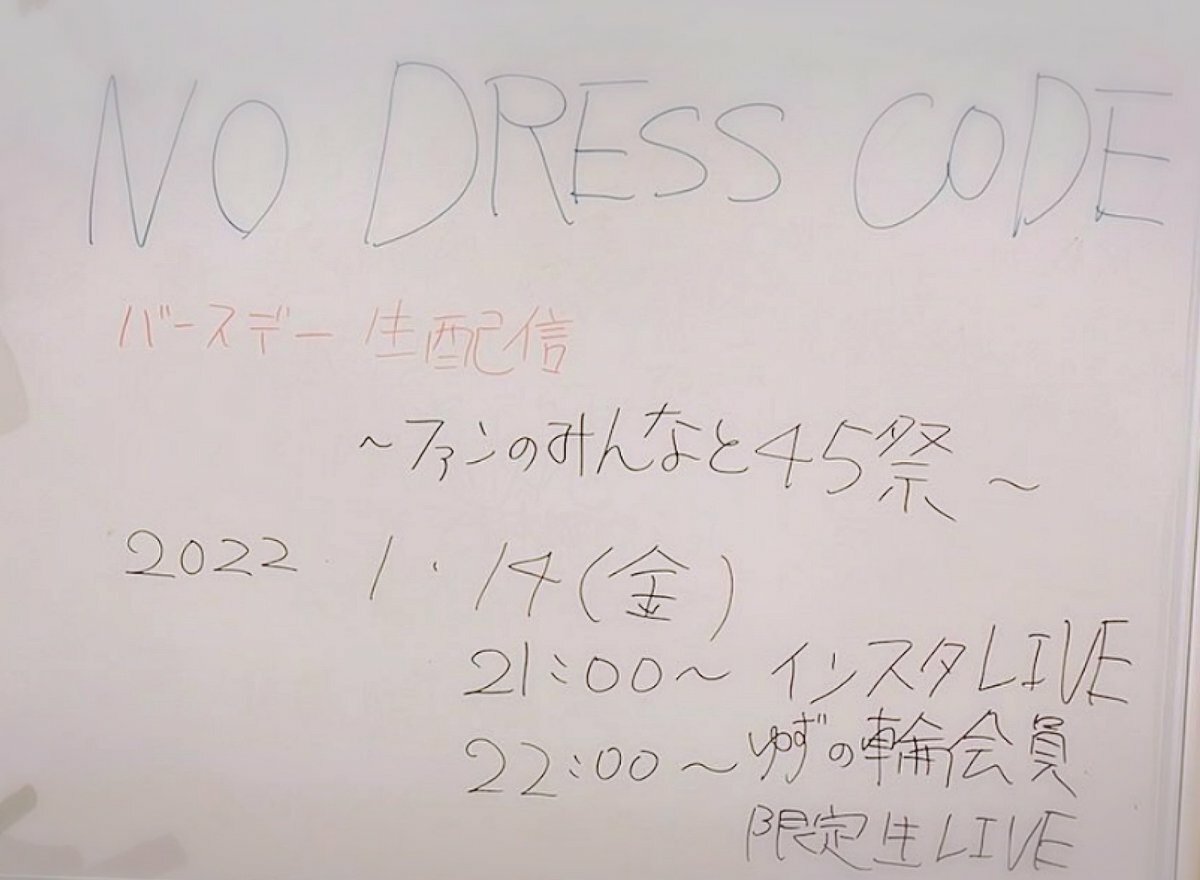 NO DRESS CODE
バースデー 生配信
～ファンのみんなと45祭～
2022.1.14(金)
21:00～ インスタLIVE
22:00～ゆずの輪会員
限定生LIVE